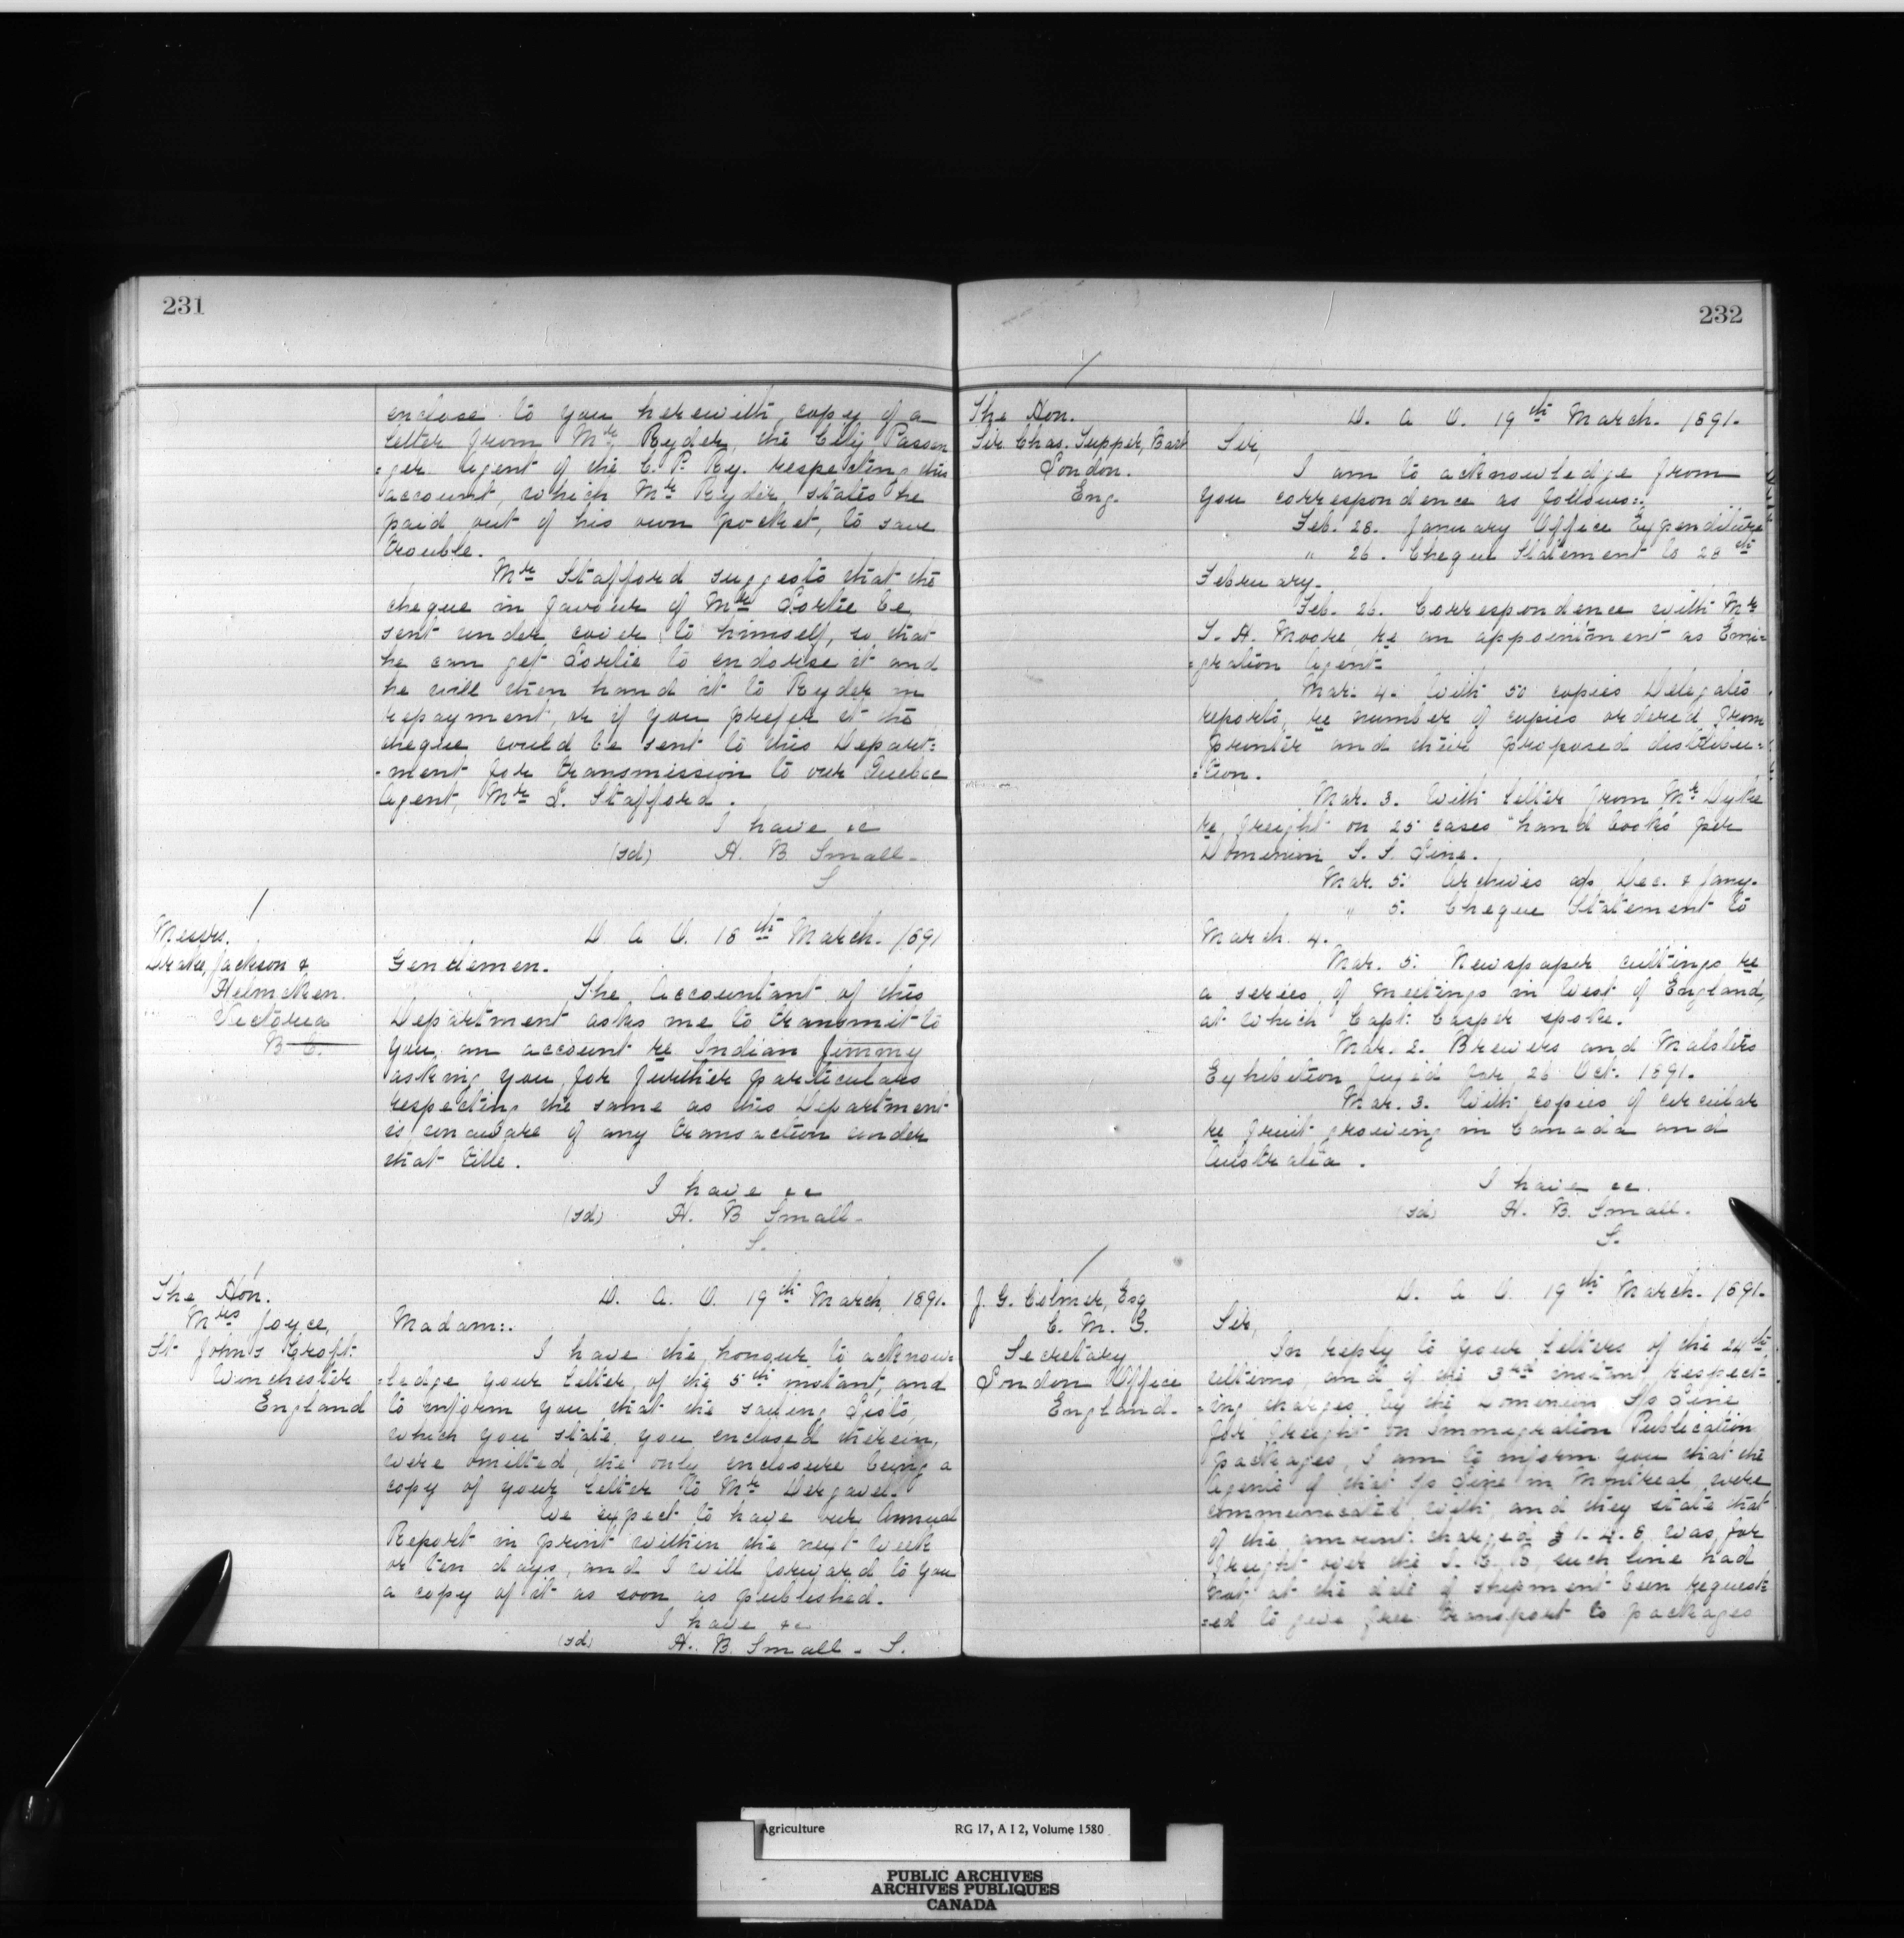 231
enclose to you herewith, copy of a
letter from Mr Ryder, the City Passen
=ger Agent of the C. P. Ry. respecting this
account, which Mr Ryder, states he
paid out of his own pocket, to save
trouble.
Mr Stafford suggests that the
cheque in favour of Mr Sorlie be
sent under cover to himself, so that
he can get Sorlie to endorse it and
he will then hand it to Ryder in
repayment, or if you prefer it the
cheque could be sent to this Depart=
-ment for transmission to our Quebec
Agent, Mr L. Stafford.
I have &c
(sd) H. B. Small.
S
Messrs.
Drake, Jackson &
Helmcken.
Victoria
B C.
D. A. O. 18th March. 1891
Gentlemen.
The Accountant of this
Department asks me to transmit to
you, an account re Indian Jimmy
asking you for further particulars
respecting the same as this Department
is unaware of any transaction under
that title.
I have &c
(sd) H. B Small.
S.
The Hon.
Mrs Joyce,
St John's Croft.
Winchester
England
D. A. O. 19th March 1891.
Madam:.
I have the honour to acknow
=ledge your letter, of the 5th instant, and
to inform you that the sailing Lists,
which you state, you enclosed therein,
were omitted, the only enclosure being a
copy of your letter to Mr
We expect to have our Annual
Report in print within the next week
or ten days, and I will forward to you
a copy of it as soon as published.
I have &c
(sd) H. B. Small. S.
232
The Hon.
Sir Chas. Tupper, Bart
London.
Eng.
D. A. O. 19th March. 1891.
Sir,
I am to acknowledge from
you correspondence as follows:.
Feb. 28. January Office Expenditure
" 26. Cheque Statement to 28th
February.
Feb. 26. Correspondence with Mr
S. H. Moore, re an appointment as Emi=
=gration Agent.
Mar. 4. With 50 copies Delegates
reports, re number of copies ordered from
printer and their proposed distribu=
=tion.
Mar. 3. With letter from Mr Dyke
re freight on 25 cases "hand books" per
Dominion S. S. Line.
Mar. 5. Archives Dec. & Jany.
" 5. Cheque Statement to
March 4.
Mar. 5. Newspaper cuttings re
a series of meetings in West of England,
at which Capt: Casper spoke.
Mar. 2. Brewers and Malsters
Exhibition 26 Oct. 1891.
Mar. 3. With copies of circular
re fruit growing in Canada and
Australia.
I have &c.
(sd) H. B. Small.
S.
J. G. Colmer, Esq
C. M. G.
Secretary
London Office
England.
D. A. O. 19th March. 1891.
Sir,
In reply to your letters of the 24th
ultimo, and of the 3rd instant, respect=
=ing charges by the Dominion S/s Line
for freight on Immigration Publication
packages, I am to inform you that the
Agents of that S/s Line in Montreal were
communicated with, and they state that
of the amount charged £1. 4. 8 was for
freight over the I. C. R, such line had
not at the date of shipment been request=
=ed to give free transport to packages
Agriculture RG 17, A I 2, Volume 1580
PUBLIC ARCHIVES
ARCHIVES PUBLIQUES
CANADA